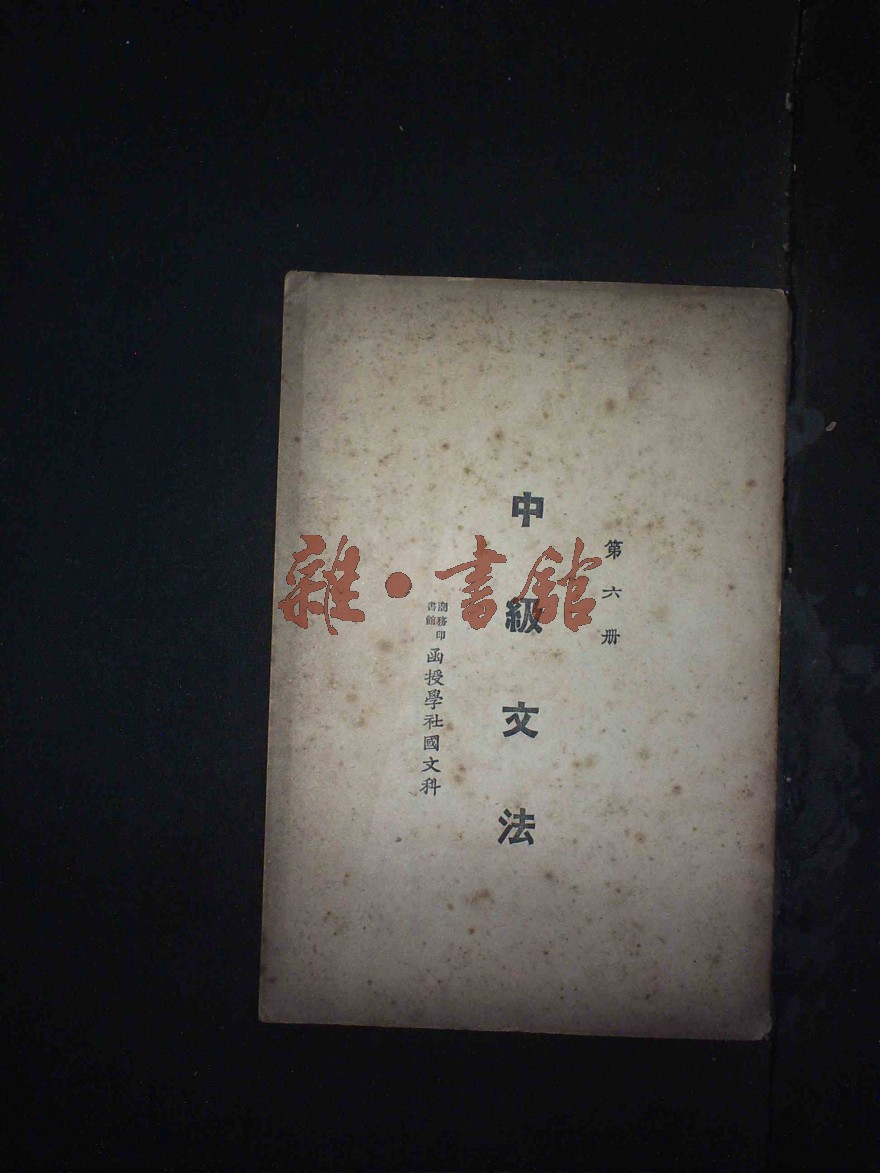 第六册
中級文法
商務印書館
函授學社國文科
雜·書館